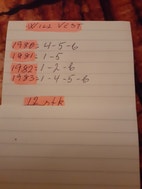 Wild West
1980= 4-5-6
1981= 1-5
1982= 1-2-6
1983= 1-4-5-6
12 stk